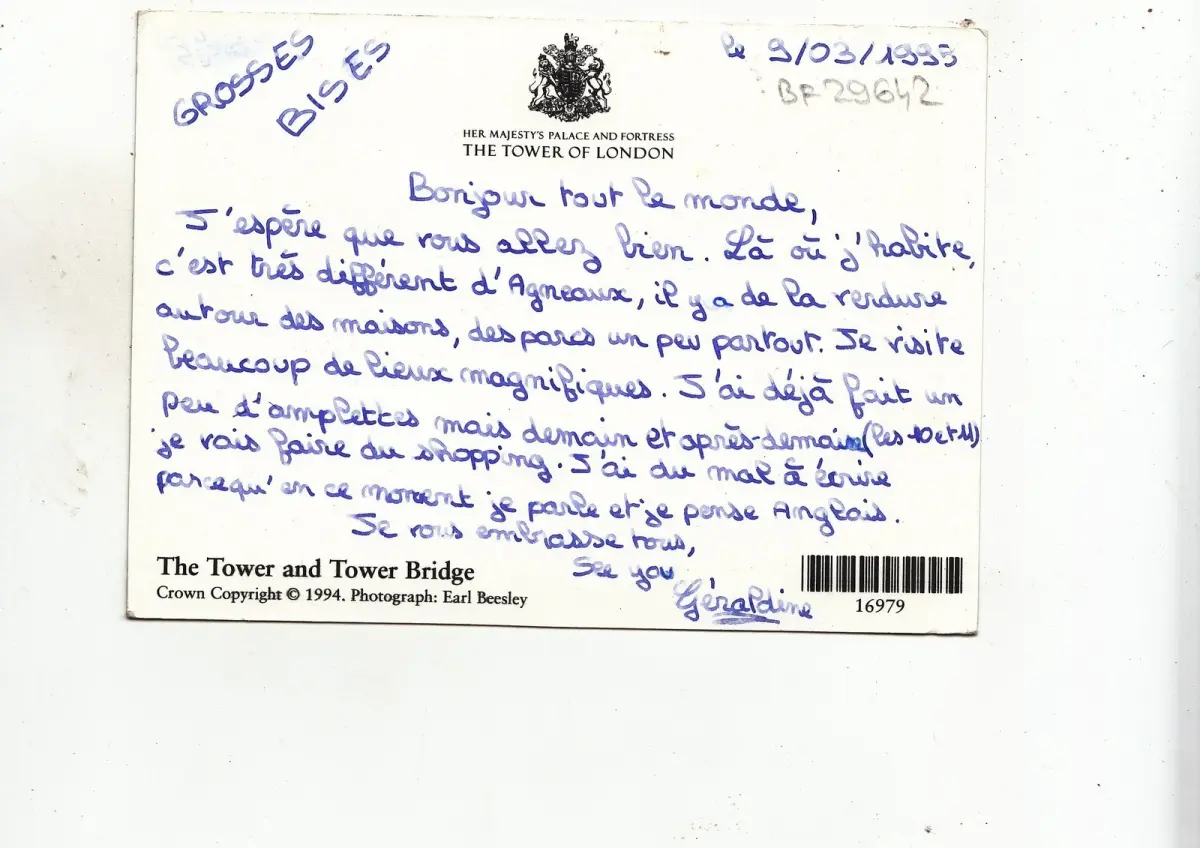 GROSSES
BISES
le 9/03/1995
BF29642
HER MAJESTY'S PALACE AND FORTRESS
THE TOWER OF LONDON
Bonjour tout le monde,
J'espère que vous allez bien. Là où j'habite,
c'est très différent d'Agneaux, il y a de la verdure
autour des maisons, des parcs un peu partout. Je visite
beaucoup de lieux magnifiques. J'ai déjà fait un
peu d'amplettes mais demain et après-demain (les 10 et 11)
je vais faire du shopping. J'ai du mal à écrire
parcequ'en ce moment je parle et je pense Anglais.
Je vous embrasse tous,
See you
Géraldine
The Tower and Tower Bridge
Crown Copyright © 1994. Photograph: Earl Beesley
16979